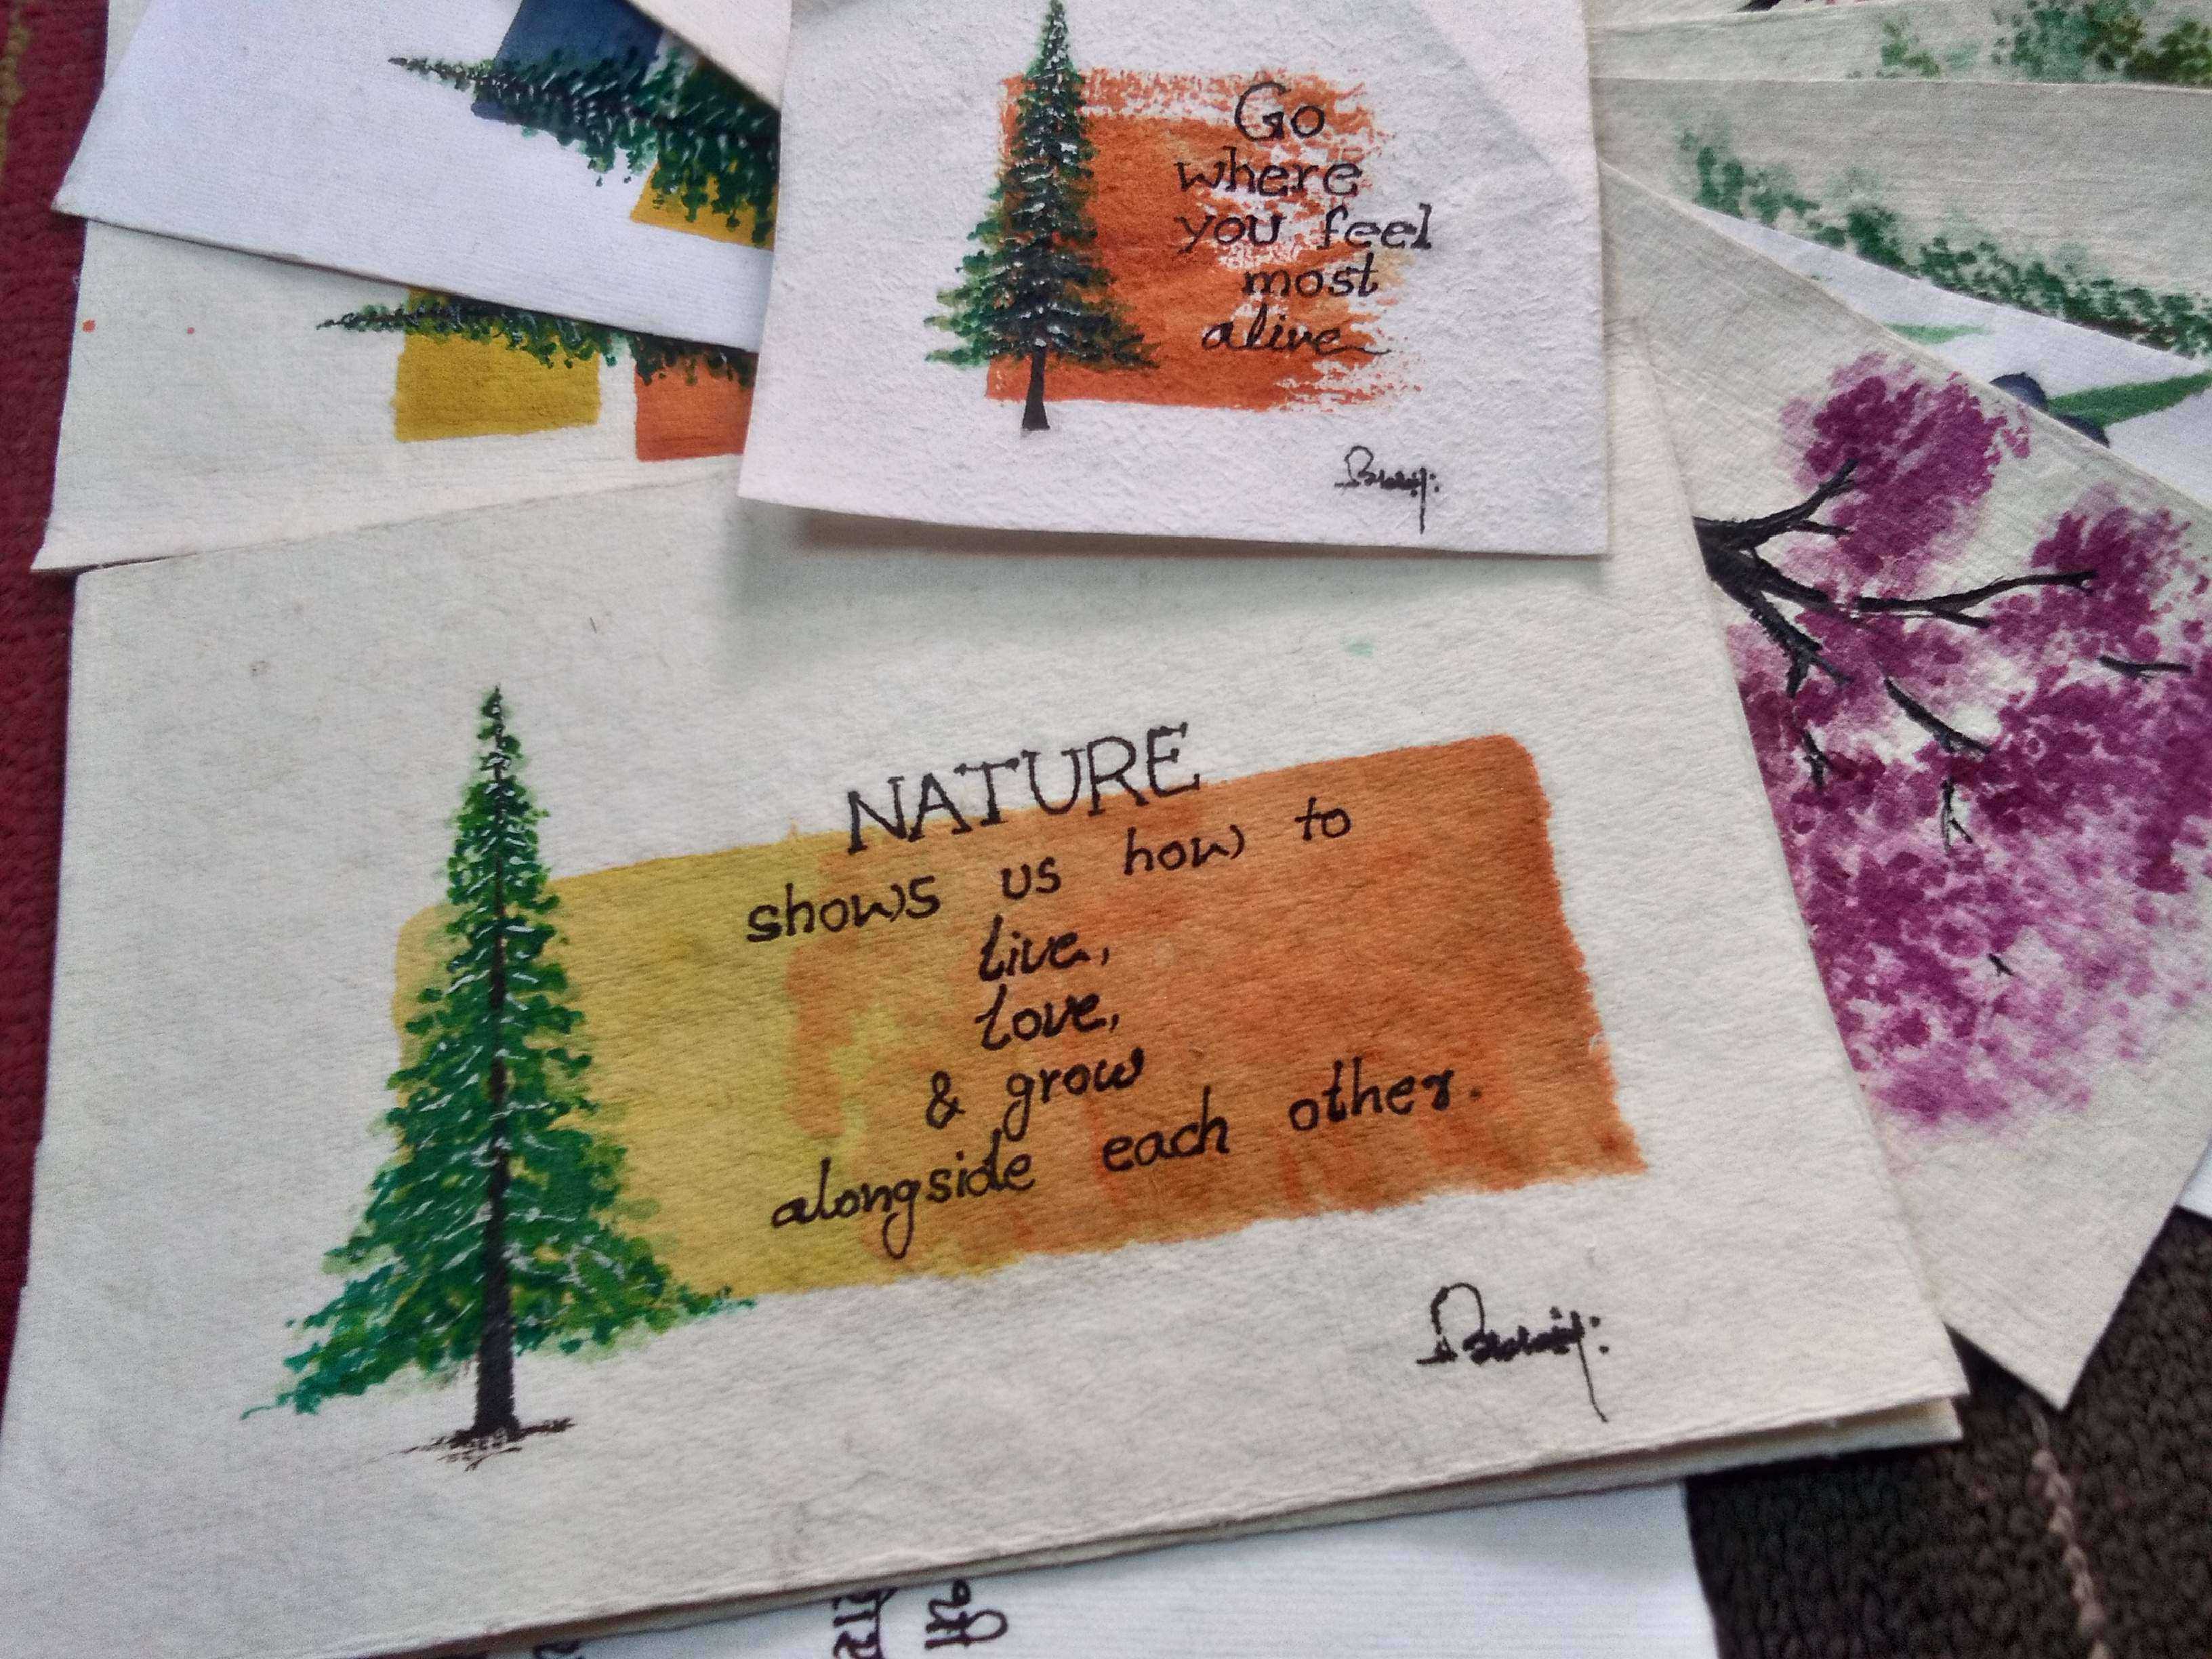 Go
where
you feel
most
alive
NATURE
shows us how to
live,
love,
& grow
alongside each other.